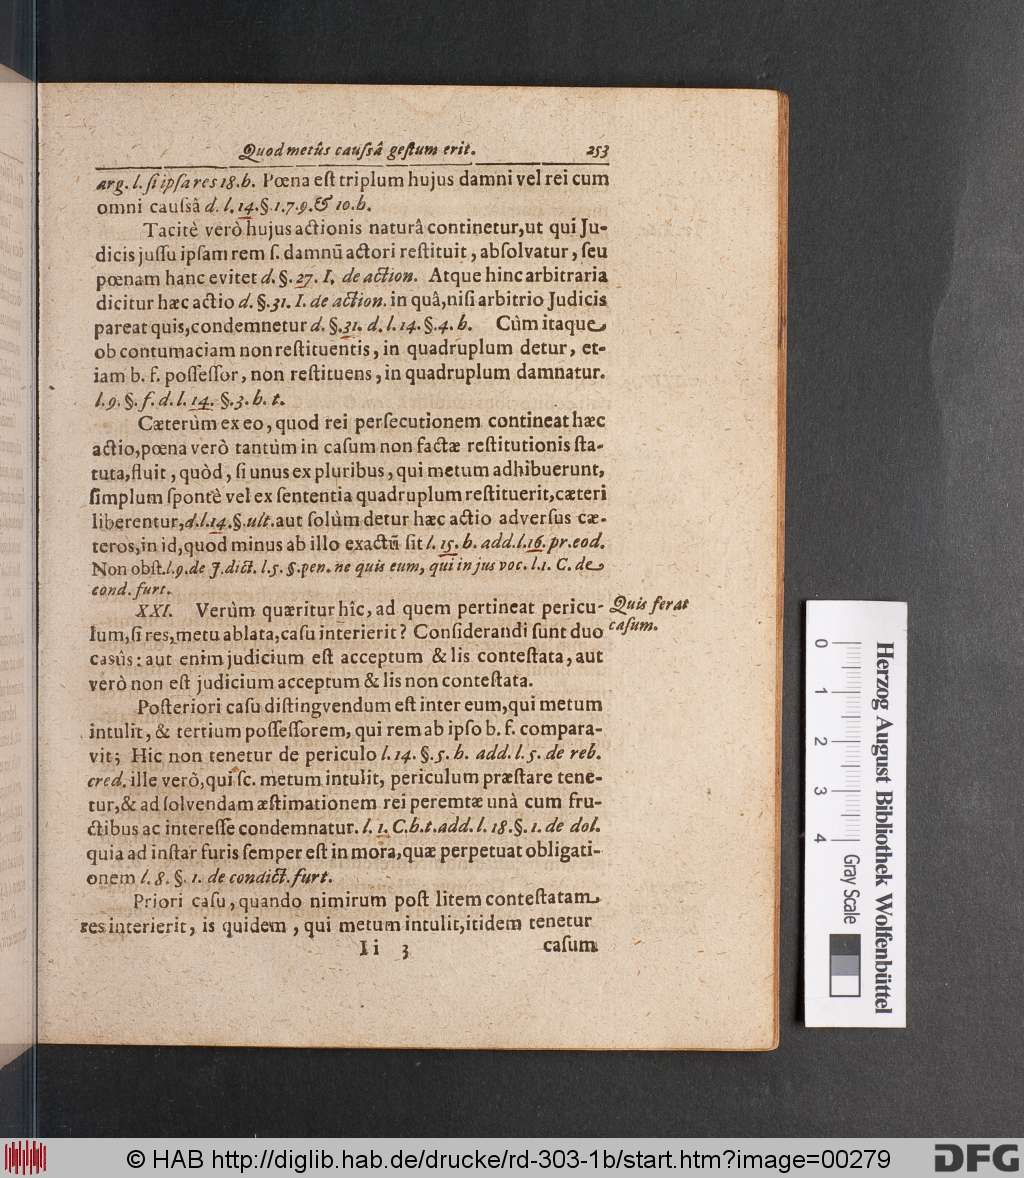 Quod metûs cauſsâ geſtum erit. 253
arg. l. ſi ipſa res 18. h. Pœna eſt triplum hujus damni vel rei cum
omni cauſsâ d. l. 14. §. 1. 7. 9. & 10. h.
Tacitè verò hujus actionis naturâ continetur, ut qui Ju-
dicis juſſu ipſam rem ſ. damnũ actori reſtituit, abſolvatur, ſeu
pœnam hanc evitet d. §. 27. I. de action. Atque hinc arbitraria
dicitur hæc actio d. §. 31. I. de action. in quâ, niſi arbitrio Judicis
pareat quis, condemnetur d. §. 31. d. l. 14. §. 4. h. Cùm itaque
ob contumaciam non reſtituentis, in quadruplum detur, et-
iam b. f. poſſeſſor, non reſtituens, in quadruplum damnatur.
l. 9. §. f. d. l. 14. §. 3. h. t.
Cæterùm ex eo, quod rei perſecutionem contineat hæc
actio, pœna verò tantùm in caſum non factæ reſtitutionis ſta-
tuta, fluit, quòd, ſi unus ex pluribus, qui metum adhibuerunt,
ſimplum ſpontè vel ex ſententia quadruplum reſtituerit, cæteri
liberentur, d. l. 14. §. ult. aut ſolùm detur hæc actio adverſus cæ-
teros, in id, quod minus ab illo exactũ ſit l. 15. h. add. l. 16. pr. eod.
Non obſt. l. 9. de J. dict. l. 5. §. pen. ne quis eum, qui in jus voc. l. 1. C. de
cond. furt.
XXI. Verùm quæritur hîc, ad quem pertineat pericu- Quis ferat
lum, ſi res, metu ablata, caſu interierit? Conſiderandi ſunt duo caſum.
casûs: aut enim judicium eſt acceptum & lis conteſtata, aut
verò non eſt judicium acceptum & lis non conteſtata.
Poſteriori caſu diſtingvendum eſt inter eum, qui metum
intulit, & tertium poſſeſſorem, qui rem ab ipſo b. f. compara-
vit; Hic non tenetur de periculo l. 14. §. 5. h. add. l. 5. de reb.
cred. ille verò, qui ſc. metum intulit, periculum præſtare tene-
tur, & ad ſolvendam æſtimationem rei peremtæ unà cum fru-
ctibus ac intereſſe condemnatur. l. 1. C. h. t. add. l. 18. §. 1. de dol.
quia ad inſtar furis ſemper eſt in mora, quæ perpetuat obligati-
onem l. 8. §. 1. de condict. furt.
Priori caſu, quando nimirum poſt litem conteſtatam
res interierit, is quidem, qui metum intulit, itidem tenetur
Ii 3 caſum
0 1 2 3 4 Gray Scale
Herzog August Bibliothek Wolfenbüttel
© HAB http://diglib.hab.de/drucke/rd-303-1b/start.htm?image=00279
DFG